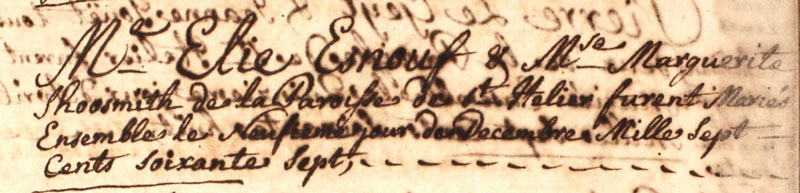 Mr. Elie Esnouf & Mse. Marguerite
Shoosmith de la Paroisse de St. Helier furent Mariés
Ensemble le Neufieme jour de Decembre Mille Sept
Cents Soixante Sept,